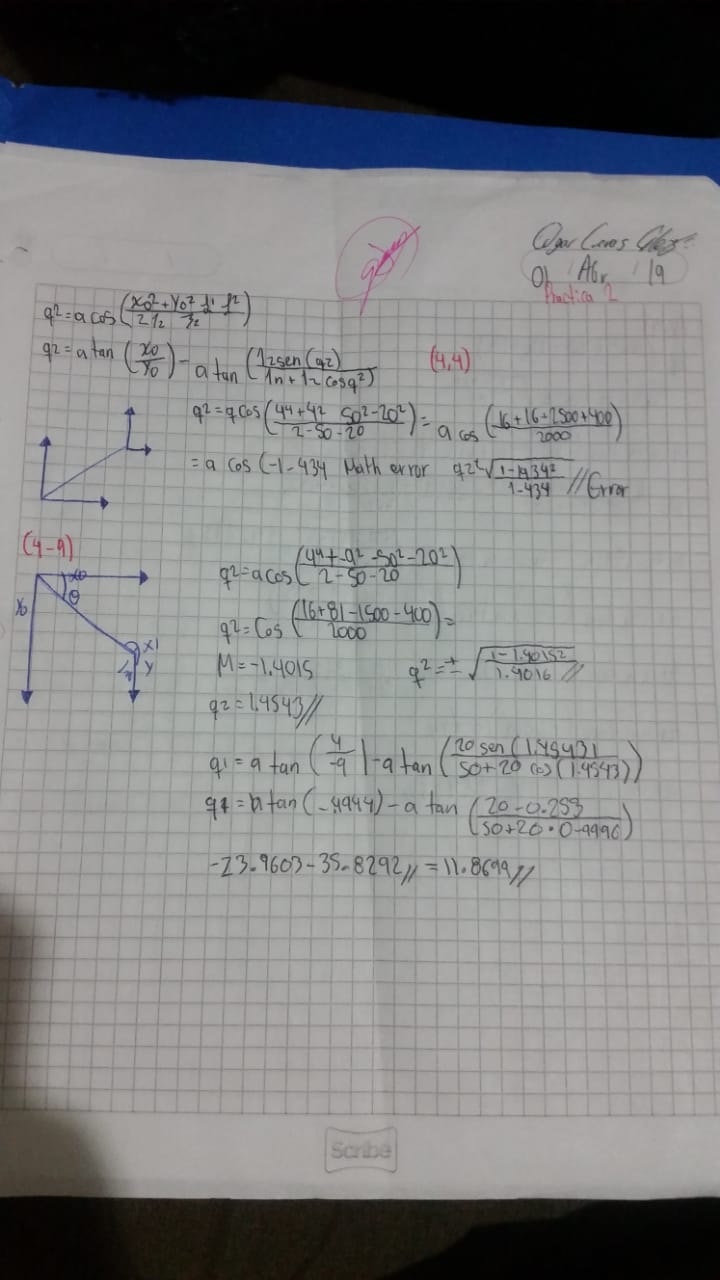 01 Abr 19
Practica 2
q2=acos(xo²+yo² / 2)
q2=atan(xo/yo)-atan(12sen(q2)/1n+12cosq2)
(4,4)
q2=qcos(44+42 50²-20²/2-50-20)= acos(16+16-2500+400/2000)
=acos(-1-434 Math error q2=√1-1.434²/1-434 //Error
(4-9)
q²=acos(44+-9²-50²-20²/2-50-20)
xo
θ
q²=Cos(16+81-1500-400/2000)=
yo
x1
y
M=-1.4015 q²=±√1-1.4015²/1.4016//
q2=1.4543//
q1=atan(4/-9)-atan(20sen(1.4543)/50+20cos(1.4543))
q1=atan(-.4944)-atan(20-0.253/50+20·0-9996)
-23.9603-35.8292//=11.8699//
Scribe